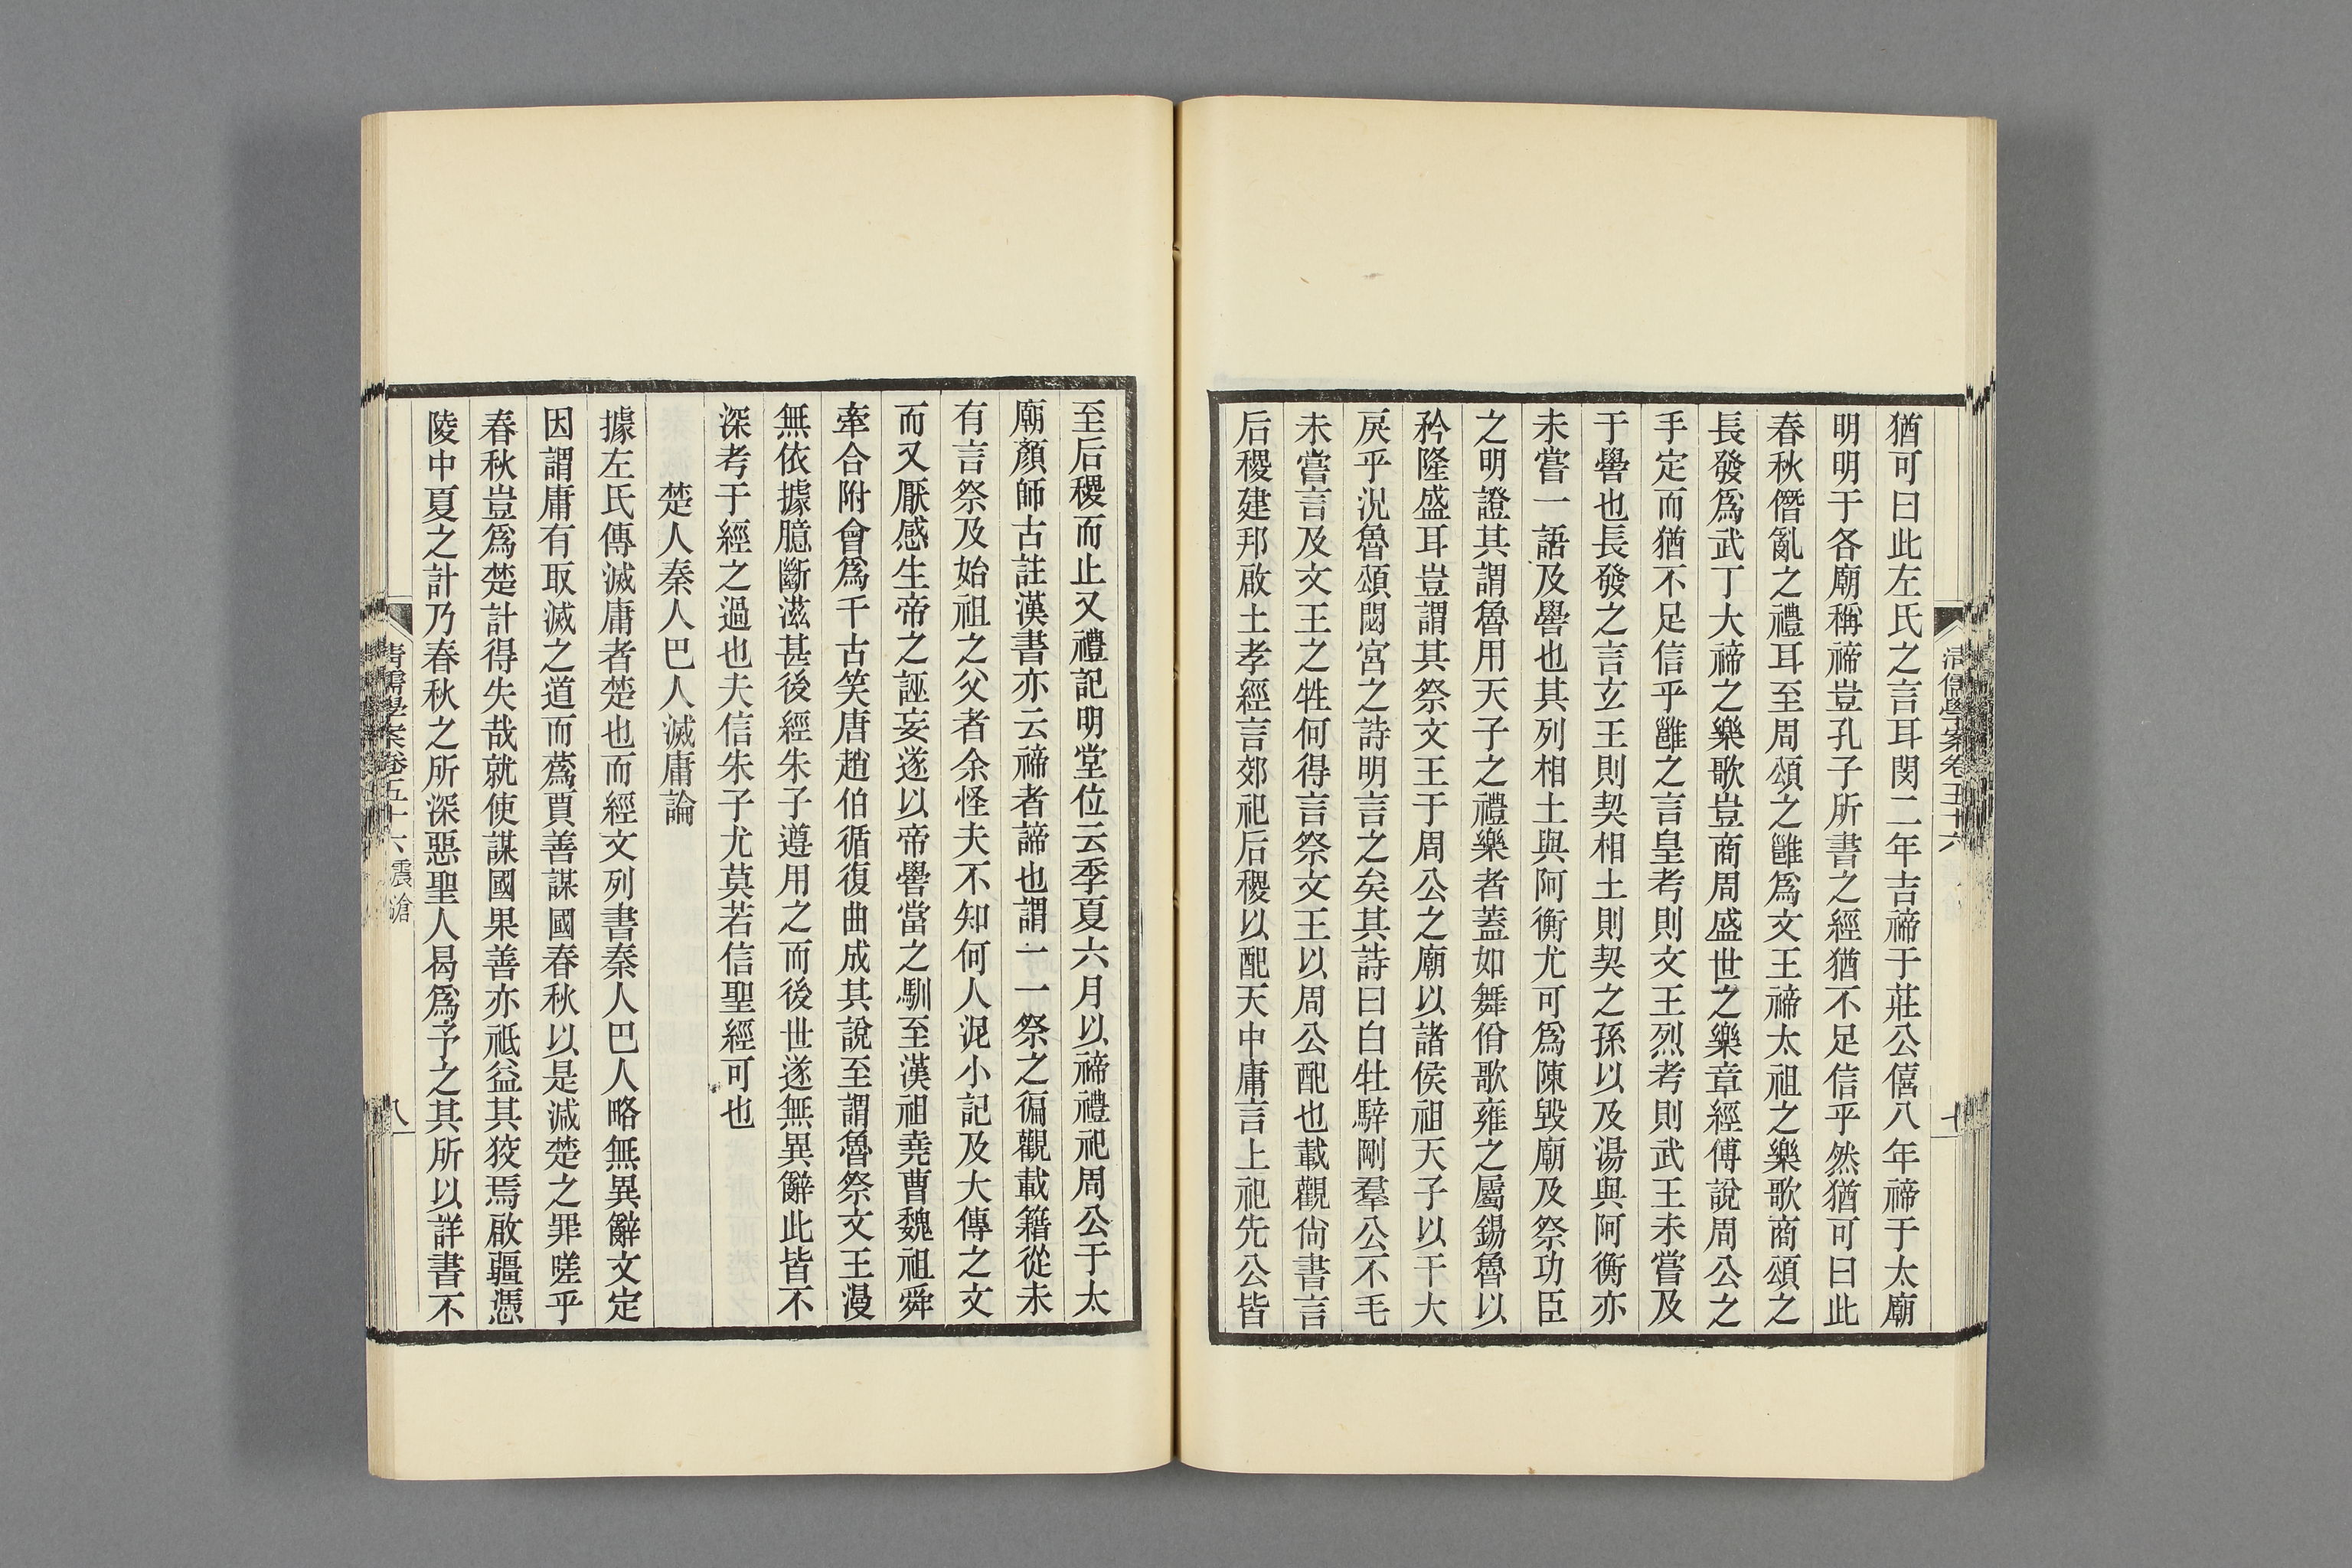 猶可曰此左氏之言耳閔二年吉禘于莊公僖八年禘于太廟
明明于各廟稱禘豈孔子所書之經猶不足信乎然猶可曰此
春秋僭亂之禮耳至周頌之雝爲文王禘太祖之樂歌商頌之
長發爲武丁大禘之樂歌豈商周盛世之樂章經傳說周公之
手定而猶不足信乎雝之言皇考則文王烈考則武王未嘗及
于嚳也長發之言玄王則契相土則契之孫以及湯與阿衡亦
未嘗一語及嚳也其列相土與阿衡尤可爲陳毀廟及祭功臣
之明證其謂魯用天子之禮樂者蓋如舞佾歌雍之屬錫魯以
矜隆盛耳豈謂其祭文王于周公之廟以諸侯祖天子以干大
戾乎況魯頌閟宮之詩明言之矣其詩曰白牡騂剛羣公不毛
未嘗言及文王之牲何得言祭文王以周公配也載觀尙書言
后稷建邦啟土孝經言郊祀后稷以配天中庸言上祀先公皆
清儒學案卷五十六
至后稷而止又禮記明堂位云季夏六月以禘禮祀周公于太
廟顏師古註漢書亦云禘者諦也謂一一祭之徧觀載籍從未
有言祭及始祖之父者余怪夫不知何人泥小記及大傳之文
而又厭感生帝之誣妄遂以帝嚳當之馴至漢祖堯曹魏祖舜
牽合附會爲千古笑唐趙伯循復曲成其說至謂魯祭文王漫
無依據臆斷滋甚後經朱子遵用之而後世遂無異辭此皆不
深考于經之過也夫信朱子尤莫若信聖經可也
楚人秦人巴人滅庸論
據左氏傳滅庸者楚也而經文列書秦人巴人略無異辭文定
因謂庸有取滅之道而蒍賈善謀國春秋以是減楚之罪嗟乎
春秋豈爲楚計得失哉就使謀國果善亦祗益其狡焉啟疆憑
陵中夏之計乃春秋之所深惡聖人曷爲予之其所以詳書不
清儒學案卷五十六 震滄
八